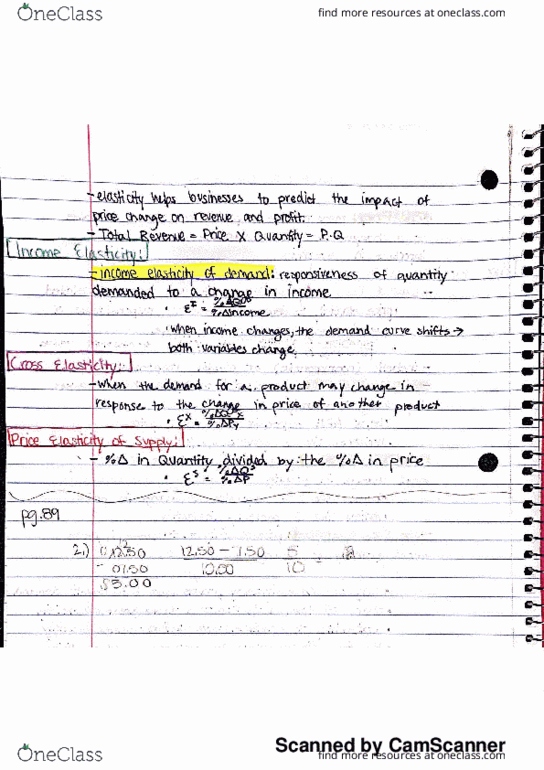 OneClass
find more resources at oneclass.com
- elasticity helps businesses to predict the impact of
price change on revenue and profit.
- Total Revenue = Price X Quantity = P.Q
Income Elasticity:
- income elasticity of demand: responsiveness of quantity
demanded to a change in income.
· Ɛᴵ = %ΔQᴰ / %ΔIncome
· When income changes, the demand curve shifts →
both variables change.
Cross Elasticity:
- When the demand for a product may change in
response to the change in price of another product
· Ɛˣ = %ΔQᴰx / %ΔPy
Price Elasticity of Supply:
- %Δ in Quantity divided by the %Δ in price
· Ɛˢ = %ΔQˢ / %ΔP
pg.89
2.) 12.50 12.50 - 7.50 5
- 07.50 10.00 10
$5.00
Scanned by CamScanner
OneClass
find more resources at oneclass.com